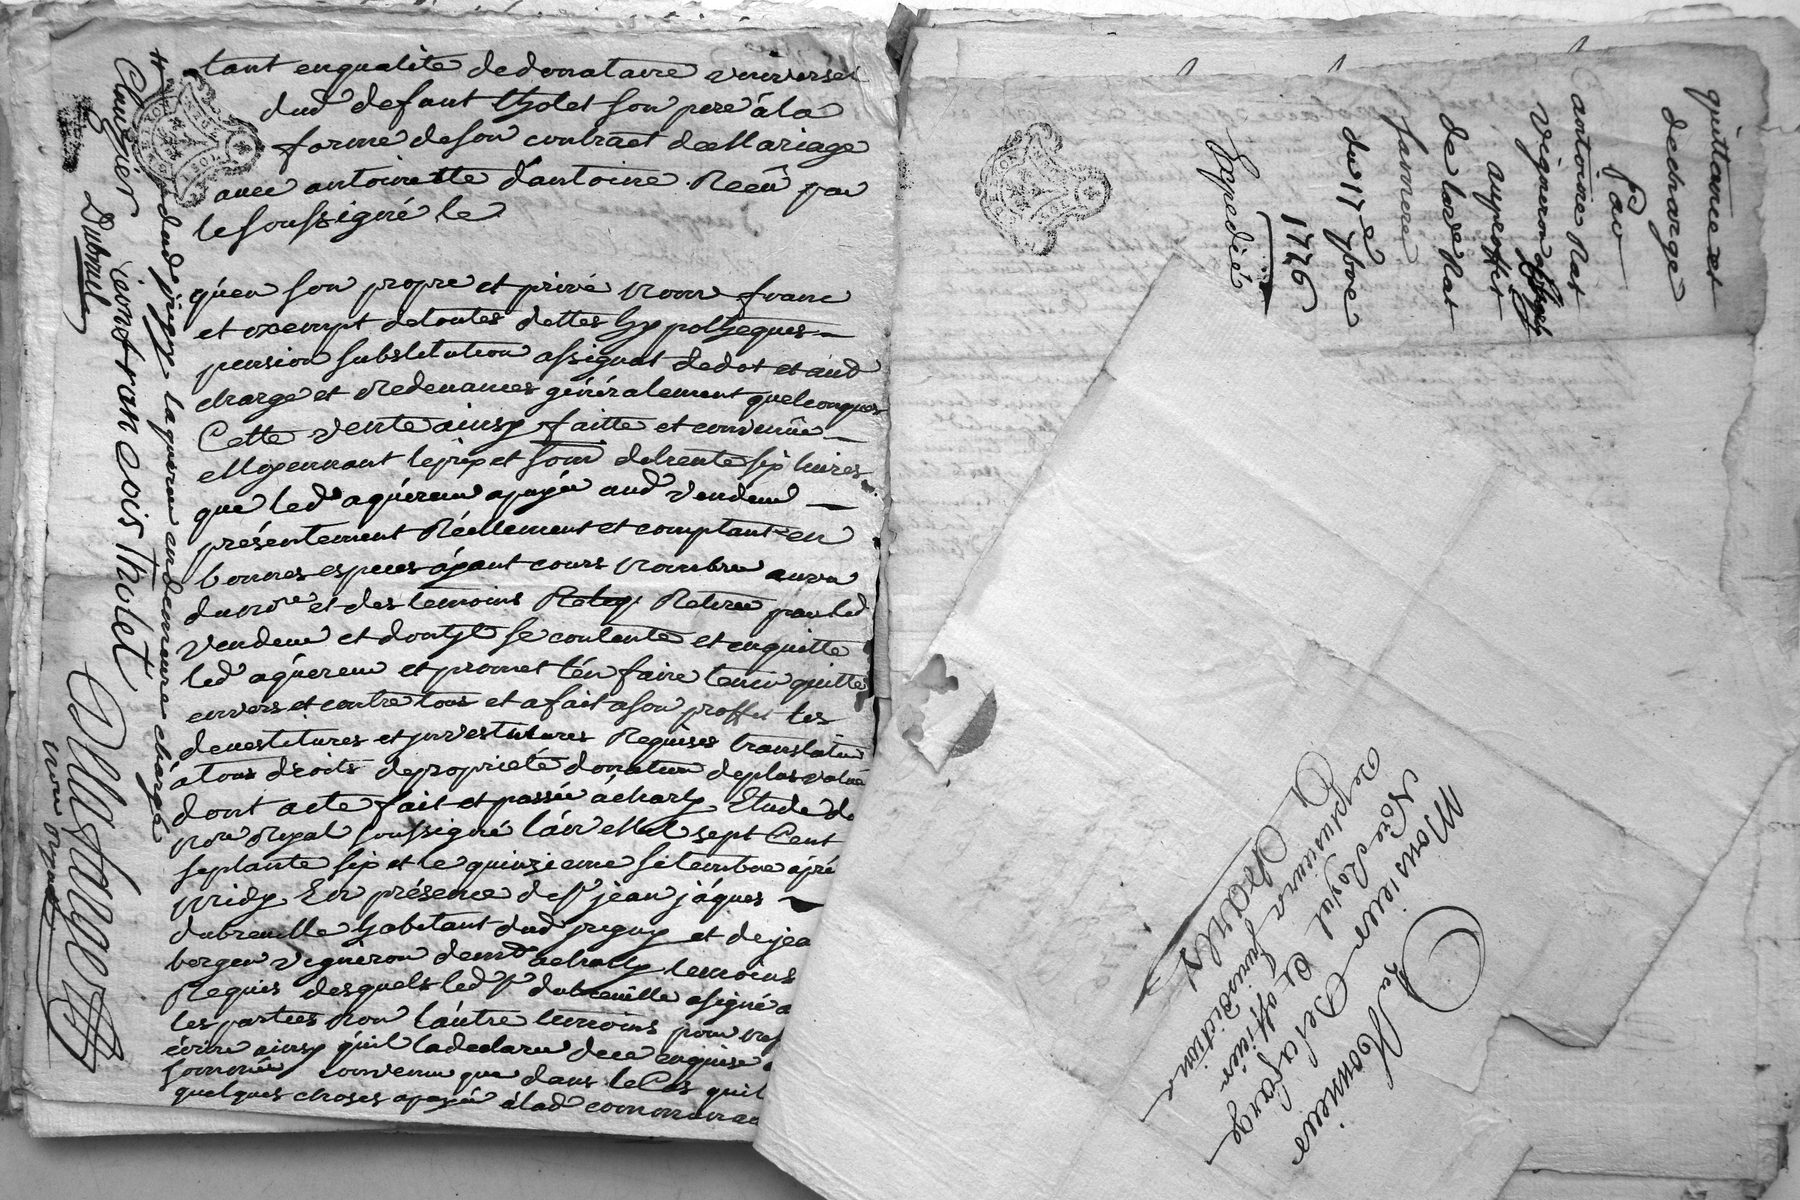 tant enqualité dedonataire universel
dud defunt tholet son pere à la
forme deson contract demariage
avec antoinette d'antoine Receû par
le soussigné le
qu'en son propre et privé nom franc
et exempt detoutes dettes hypotheques
pension substitution assignat dedot et aud
charge et Redevances généralement quelconques
Cette vente ainsy faitte et convenüe
Moyennant leprix et som detrente six livres
que led aquereur apayée aud vendeur
présentement Réellement et comptant en
bonnes especes ayant cours nombrée auveu
dunore et des temoins Retirée parled
vendeur et dontyl se contente et enquitte
led aquereur et promet l'en faire tenir quitte
envers et contre tous et afait ason proffit les
devestitures et jnvestitures Requises translation
atous droits depropriété donation deplus valüe
dont acte fait et passée acharly Etude de
nore Royal soussigné l'an Mil sept Cent
septante six et le quinzieme setembre aprè
midy En présence de sr jean jâques
dubreuille habitant dud jrigny et de jea
berger vigneron demt acharly temoins
Requis desquels led sr dubreuille asigné a
les parties non l'autre temoins pour ne s
écrire ainsy qu'il ladeclaré dece enquis e
sommé convenu que dans le Cas quil
quelques choses apayée alad
dud jrigny laquereur endemeure chargé
Clauzier jean francois Tholet
Dubreuil
Delafarge
nore royal
quittance et
decharge
Par
antoine Rat
Vigneron
auproffit
de Rat
du 17e 7bre
1776
Expedié
A Monsieur
Monsieur Delafarge
Nore Royal et officier
de plusieurs Juridictions
A Charly